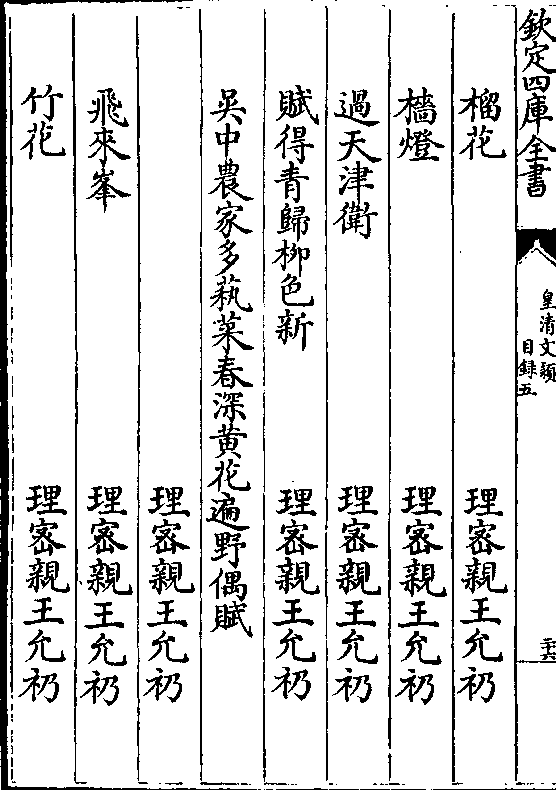 欽定四庫全書
皇清文穎
目録五
榴花 理密親王允礽
檣燈 理密親王允礽
過天津衛 理密親王允礽
賦得青歸柳色新 理密親王允礽
吳中農家多蓺菜春深黄花遍野偶賦
理密親王允礽
飛來峯 理密親王允礽
竹花 理密親王允礽